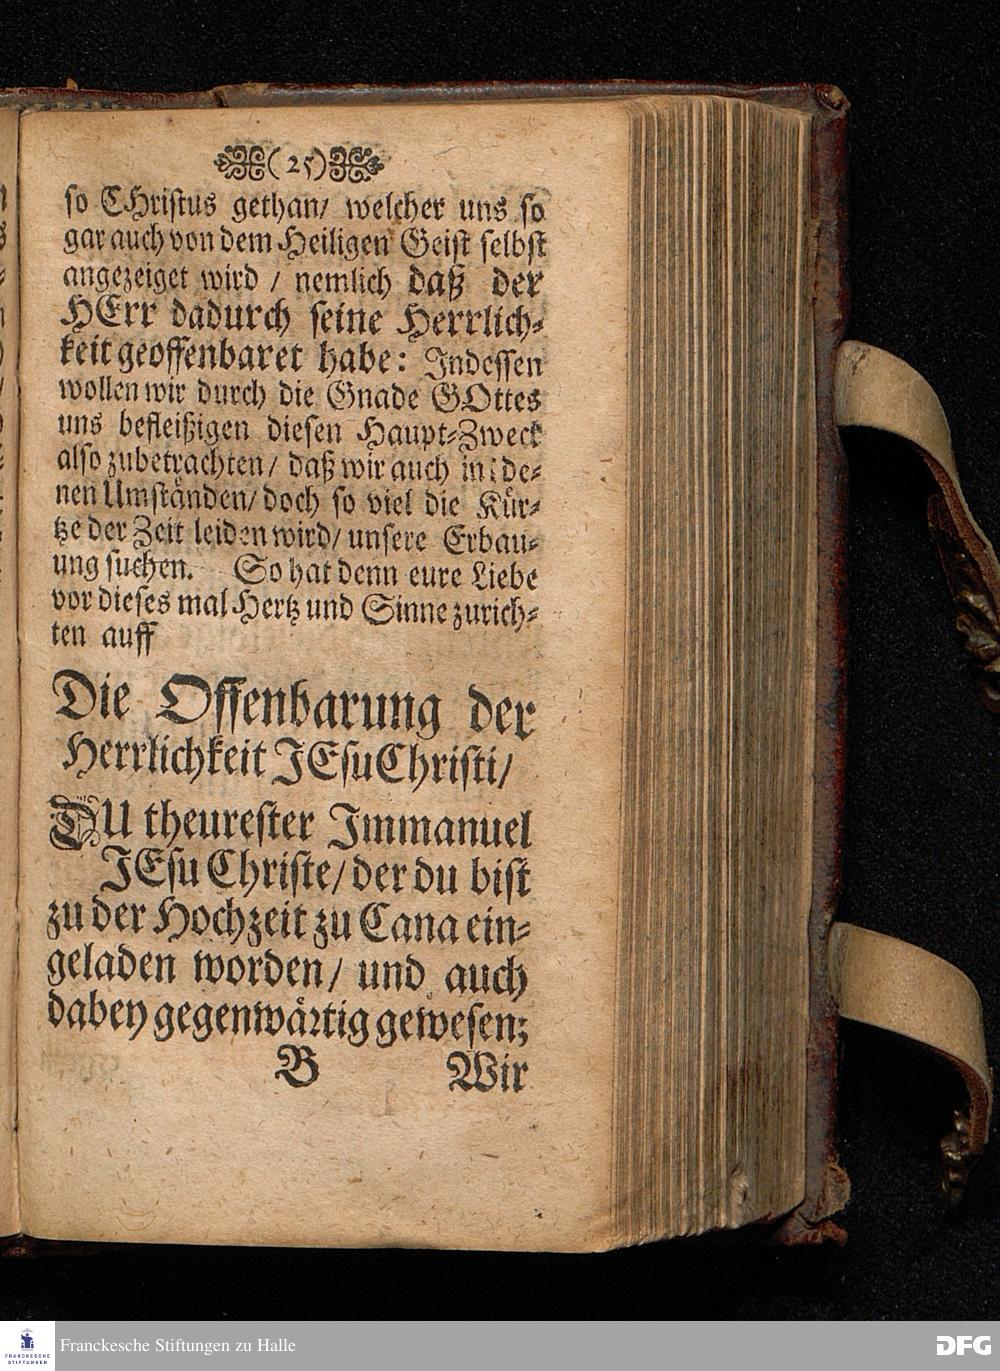 (25)
so CHristus gethan/ welcher uns so
gar auch von dem Heiligen Geist selbst
angezeiget wird / nemlich daß der
HErr dadurch seine Herrlich-
keit geoffenbaret habe: Indessen
wollen wir durch die Gnade GOttes
uns befleißigen diesen Haupt-Zweck
also zubetrachten/ daß wir auch in de-
nen Umständen/ doch so viel die Kür-
tze der Zeit leiden wird/ unsere Erbau-
ung suchen. So hat denn eure Liebe
vor dieses mal Hertz und Sinne zurich-
ten auff
Die Offenbarung der
Herrlichkeit JEsu Christi/
DU theurester Immanuel
JEsu Christe/ der du bist
zu der Hochzeit zu Cana ein-
geladen worden/ und auch
dabey gegenwärtig gewesen;
B Wir
FRANCKESCHE STIFTUNGEN
Franckesche Stiftungen zu Halle
DFG